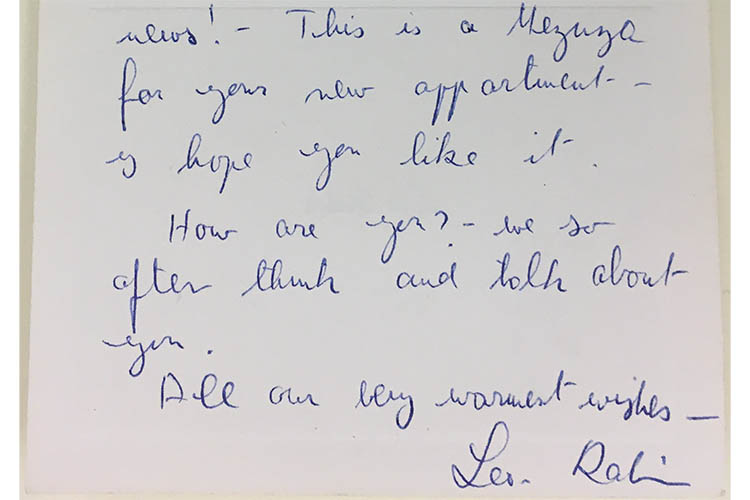 news! - This is a Mezuza
for your new appartment -
I hope you like it.
How are you? - we so
often think and talk about
you.
All our very warmest wishes -
Lea Rabin